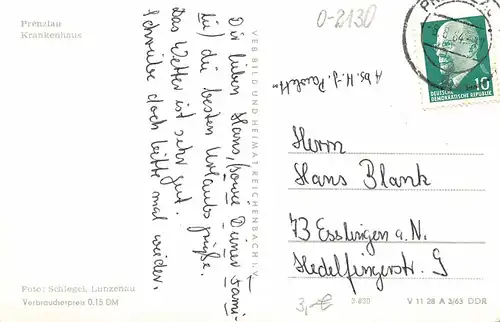 Prenzlau
Krankenhaus
0-2130
10
DEUTSCHE
DEMOKRATISCHE REPUBLIK
Dir lieben Hans, (sowie Deiner Fami-
lie) die besten Urlaubsgrüße.
Das Wetter ist sehr gut.
Schreibe doch bitte mal wieder.
VEB BILD UND HEIMAT REICHENBACH I. V.
Abs. H.-J.
Herrn
Hans Blank
73 Esslingen a. N.
Hedelfingerstr. 9
Foto: Schlegel, Lunzenau
Verbraucherpreis 0.15 DM
3,-€
V 11 28 A 3/63 DDR